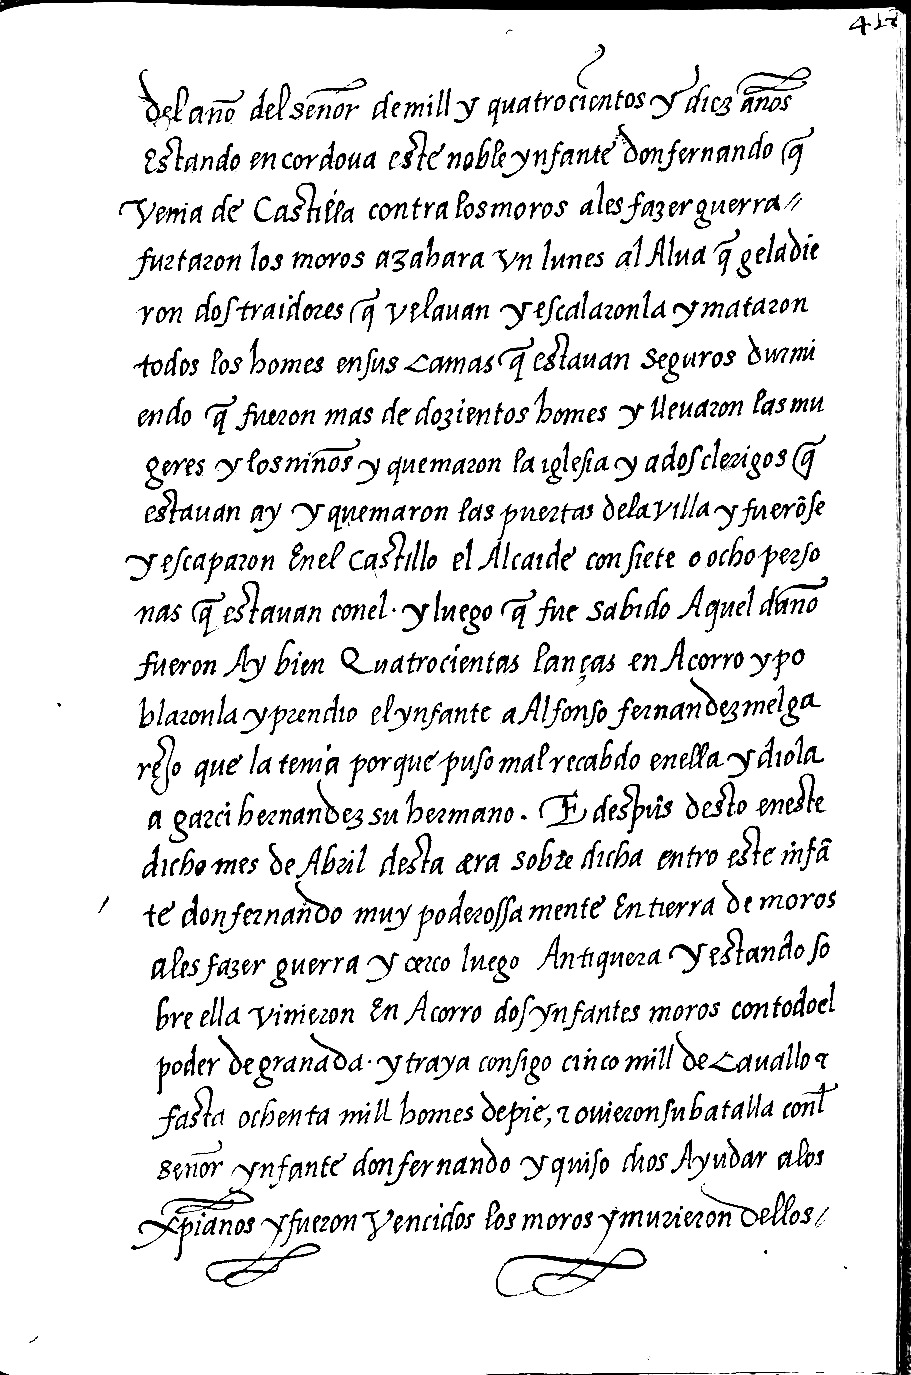 417
del año del señor de mill y quatrocientos y diez años
Estando en cordoua este noble ynfante don fernando q̃
Venia de Castilla contra los moros a les fazer guerra //
furtaron los moros azahara vn lunes al Alua q̃ gela die
ron dos traidores q̃ velauan y escalaronla y mataron
todos los homes en sus camas q̃ estauan seguros durmi
endo q̃ fueron mas de dozientos homes y lleuaron las mu
geres y los niños y quemaron la iglesia y a dos clerigos q̃
estauan ay y quemaron las puertas de la villa y fuerõse
y escaparon En el Castillo el Alcaide con siete o ocho perso
nas q̃ estauan con el · y luego q̃ fue sabido Aquel daño
fueron Ay bien Quatrocientas lanças en Acorro y po
blaronla y prendio el ynfante a Alfonso fernandez melga
rejo que la tenia porque puso mal recabdo en ella y diola
a garci hernandez su hermano . E despũs desto en este
dicho mes de Abril desta æra sobre dicha entro este infã
te don fernando muy poderossa mente En tierra de moros
a les fazer guerra y cerco luego Antiquera y estando so
bre ella vinieron En Acorro dos ynfantes moros con todo el
poder de granada · y traya consigo cinco mill de cauallo ⁊
fasta ochenta mill homes de pie, ⁊ ouieron su batalla conl
señor ynfante don fernando y quiso dios Ayudar a los
xpianos y fueron Vencidos los moros y murieron dellos /